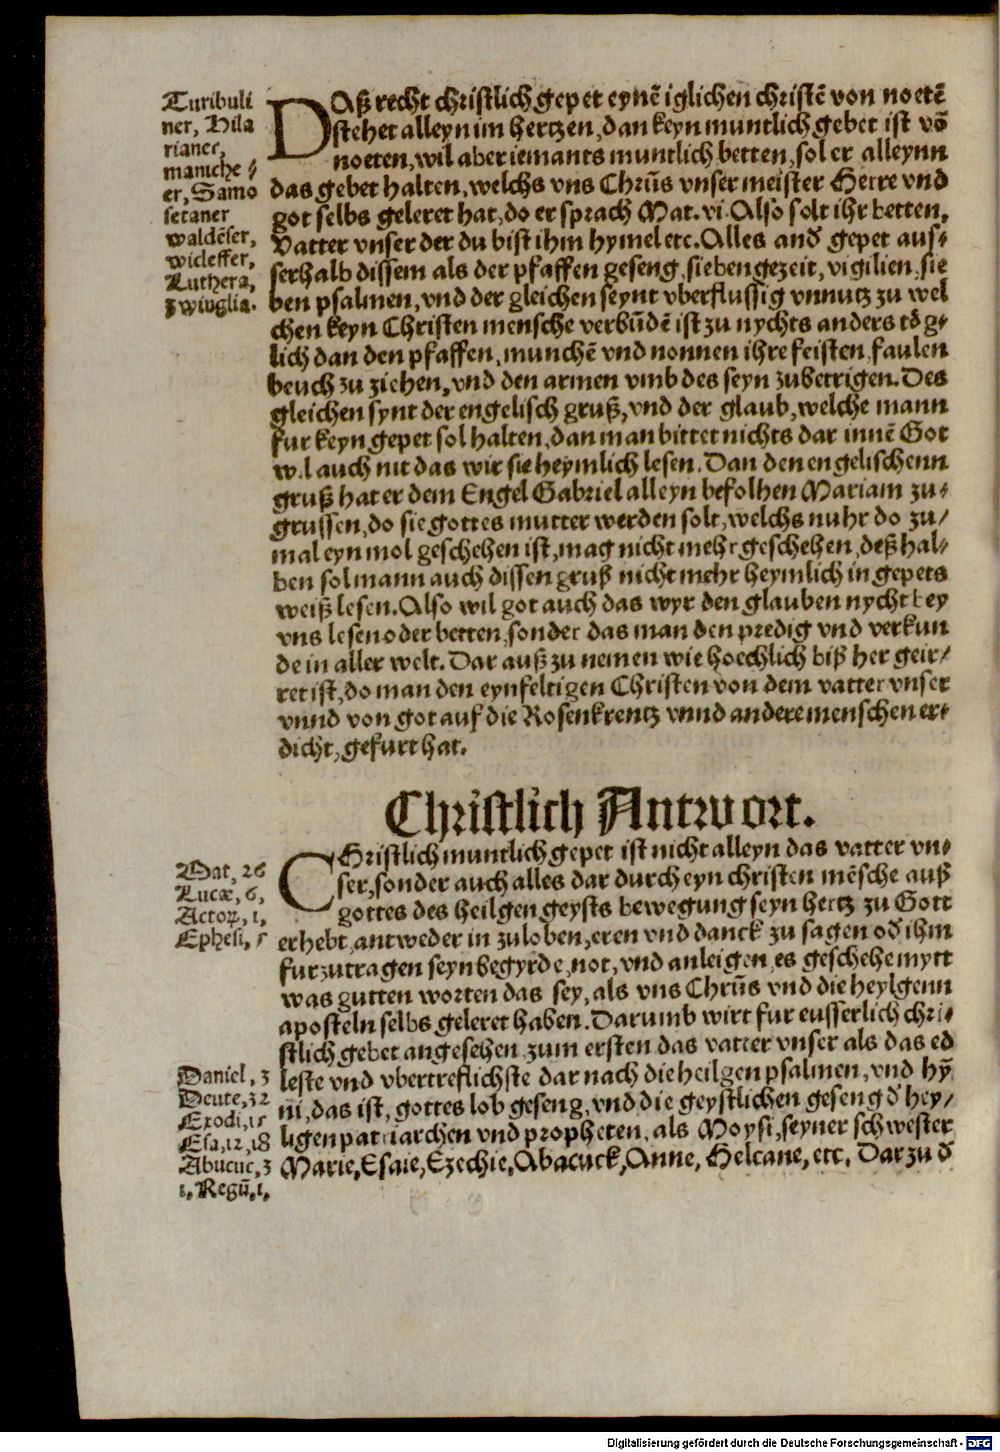 Turibuli
ner, Hila
rianer,
maniche⸗
er, Samo
setaner
waldẽser,
wicleffer,
Luthera,
zwinglia.
DAß recht christlich gepet eynẽ iglichen christẽ von noetẽ
stehet alleyn im hertzen, dan keyn muntlich gebet ist võ
noeten, wil aber iemants muntlich betten, sol er alleynn
das gebet halten, welchs vns Chrūs vnser meister Herre vnd
got selbs geleret hat, do er sprach Mat. vi. Also solt ihr betten,
Vatter vnser der du bist ihm hymel etc. Alles and' gepet aus⸗
serhalb dissem als der pfaffen geseng, siebengezeit, vigilien, sie
ben psalmen, vnd der gleichen seynt vberflussig vnnutz zu wel
chen keyn Christen mensche verbūdē ist zu nychts anders tōg⸗
lich dan den pfaffen, munchẽ vnd nonnen ihre feisten faulen
beuch zu ziehen, vnd den armen vmb des seyn zubetrigen. Des
gleichen synt der engelisch gruß, vnd der glaub, welche mann
fur keyn gepet sol halten, dan man bittet nichts dar innẽ Got
wil auch nit das wir sie heymlich lesen. Dan den engelischenn
gruß hat er dem Engel Gabriel alleyn befolhen Mariam zu⸗
grussen, do sie gottes mutter werden solt, welchs nuhr do zu⸗
mal eyn mol geschehen ist, mag nicht mehr geschehen, deßhal⸗
ben sol mann auch dissen gruß nicht mehr heymlich in gepets
weiß lesen. Also wil got auch das wyr den glauben nycht bey
vns lesen oder betten, sonder das man den predig vnd verkun
de in aller welt. Dar auß zu nemen wie hoechlich biß her geir⸗
ret ist, do man den eynfeltigen Christen von dem vatter vnser
vnnd von got auf die Rosenkrentz vnnd andere menschen er⸗
dicht, gefurt hat.
Christlich Antwort.
Mat, 26
Lucæ, 6,
Actoꝝ, 1,
Ephesi, 5
CHristlich muntlich gepet ist nicht alleyn das vatter vn⸗
ser, sonder auch alles dar durch eyn christen mẽsche auß
gottes des heilgen geysts bewegung seyn hertz zu Gott
erhebt, antweder in zuloben, eren vnd danck zu sagen od' ihm
furzutragen seyn begyrde, not, vnd anleigen, es geschehe mytt
was gutten worten das sey, als vns Chrūs vnd die heylgenn
aposteln selbs geleret haben. Darumb wirt fur eusserlich chri⸗
stlich gebet angesehen zum ersten das vatter vnser als das ed
leste vnd vbertreflichste dar nach die heilgen psalmen, vnd hȳ
ni, das ist, gottes lob geseng, vnd die geystlichen geseng d' hey⸗
ligen patriarchen vnd propheten, als Moysi, seyner schwester
Marie, Esaie, Ezechie, Abacuck, Anne, Helcane, etc. Dar zu d'
Daniel, 3
Deute, 32
Exodi, 15
Esa, 12, 18
Abucuc, 3
1, Regū, 1,
Digitalisierung gefördert durch die Deutsche Forschungsgemeinschaft - DFG